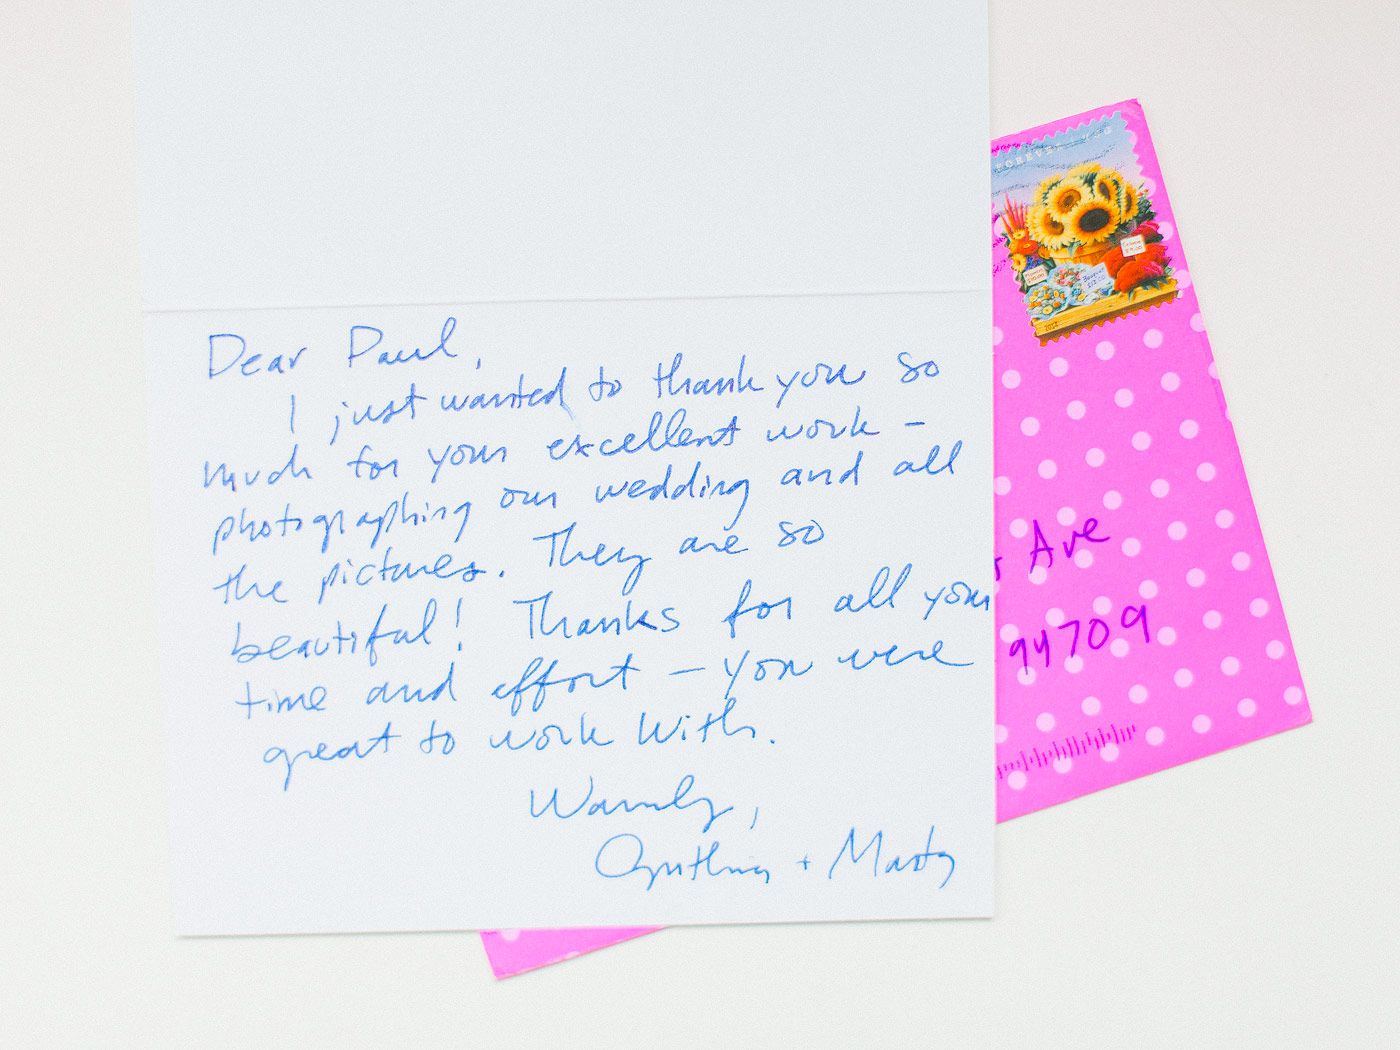 Dear Paul,
I just wanted to thank you so
much for your excellent work –
photographing our wedding and all
the pictures. They are so
beautiful! Thanks for all your
time and effort – you were
great to work with.
Warmly,
Cynthia + Marty
FOREVER
Bouquet
Ave
94709